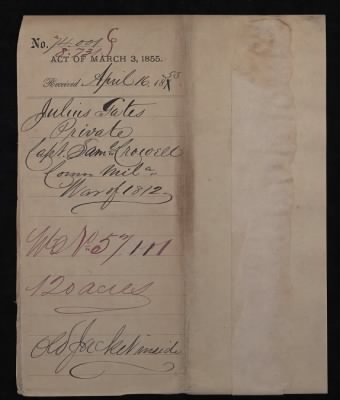 No. 74.009
8.731
ACT OF MARCH 3, 1855.
Received April 16, 1855
Julius Gates
Private
Capt. Saml Crowell
Conn Mila
War of 1812
Wt No. 57,111
120 acres
Old Jacket inside